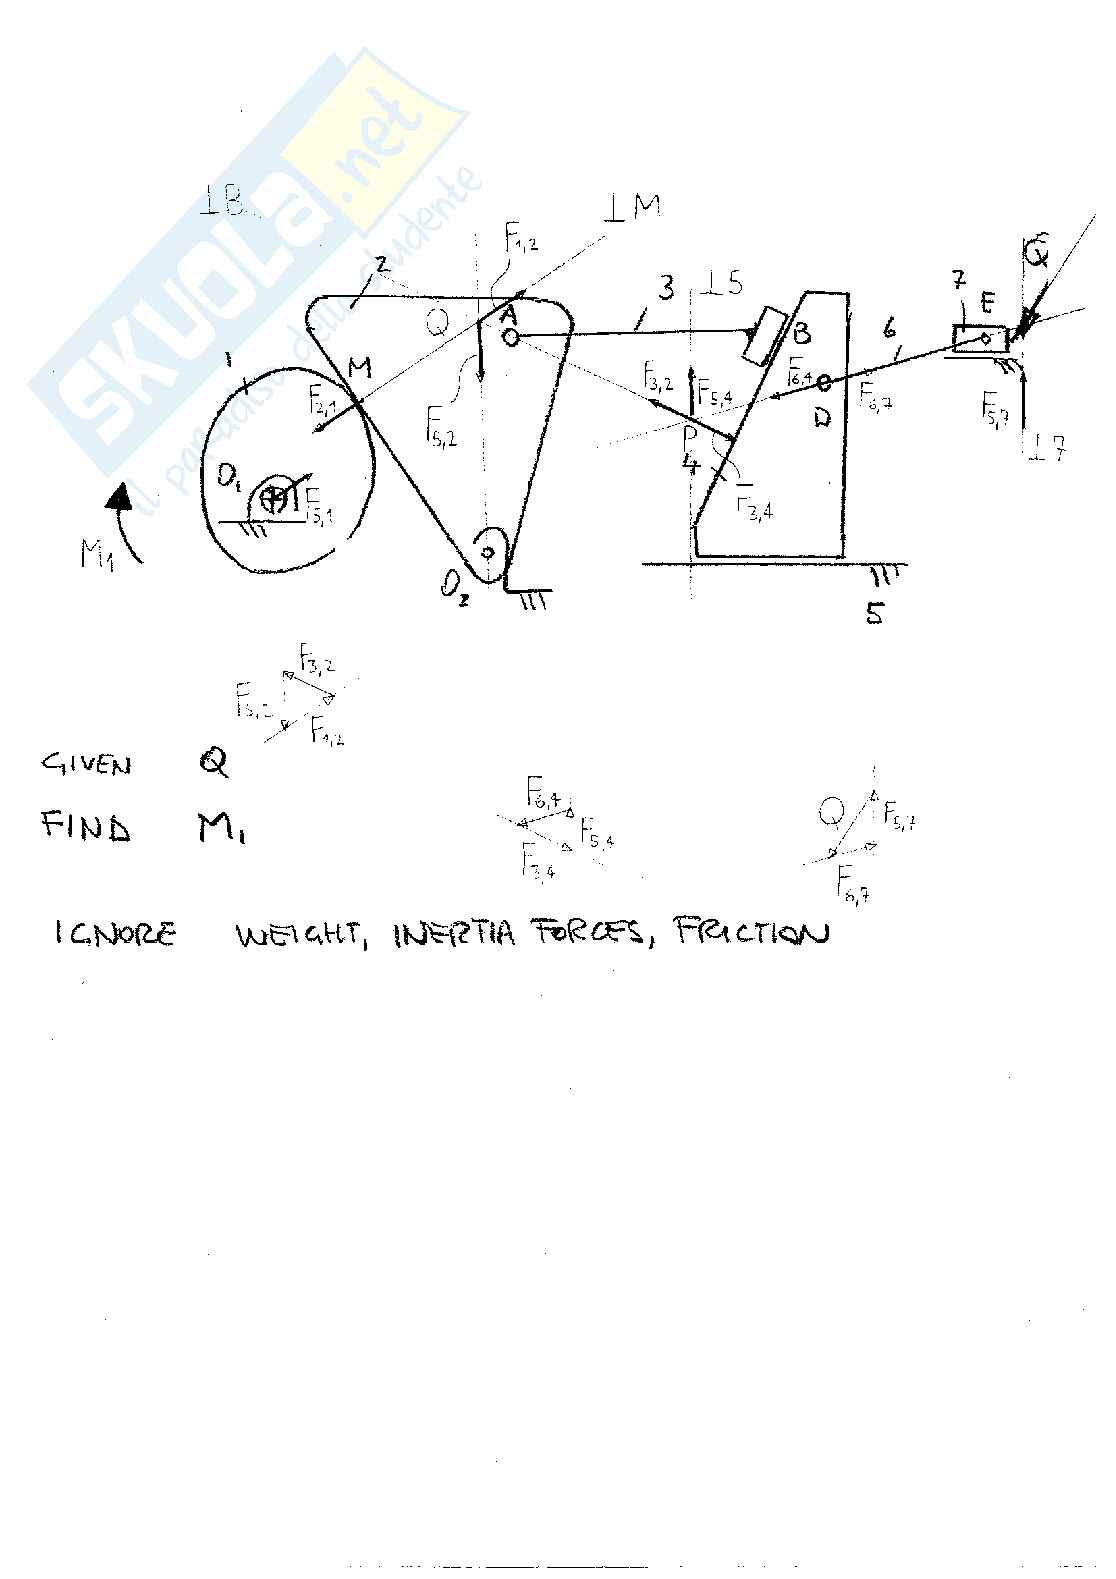 SKUOLA.net
il paradiso dello studente
⊥B
⊥M
F1,2
2
Q
A
3
⊥5
B
7
E
Q
6
1
M
F2,1
F5,2
F3,2
F5,4
F6,4
D
F6,7
F5,7
⊥7
P
4
F3,4
O1
F5,1
M1
O2
5
F3,2
F5,2
F1,2
GIVEN Q
FIND M1
F6,4
F5,4
F3,4
Q
F5,7
F6,7
IGNORE WEIGHT, INERTIA FORCES, FRICTION